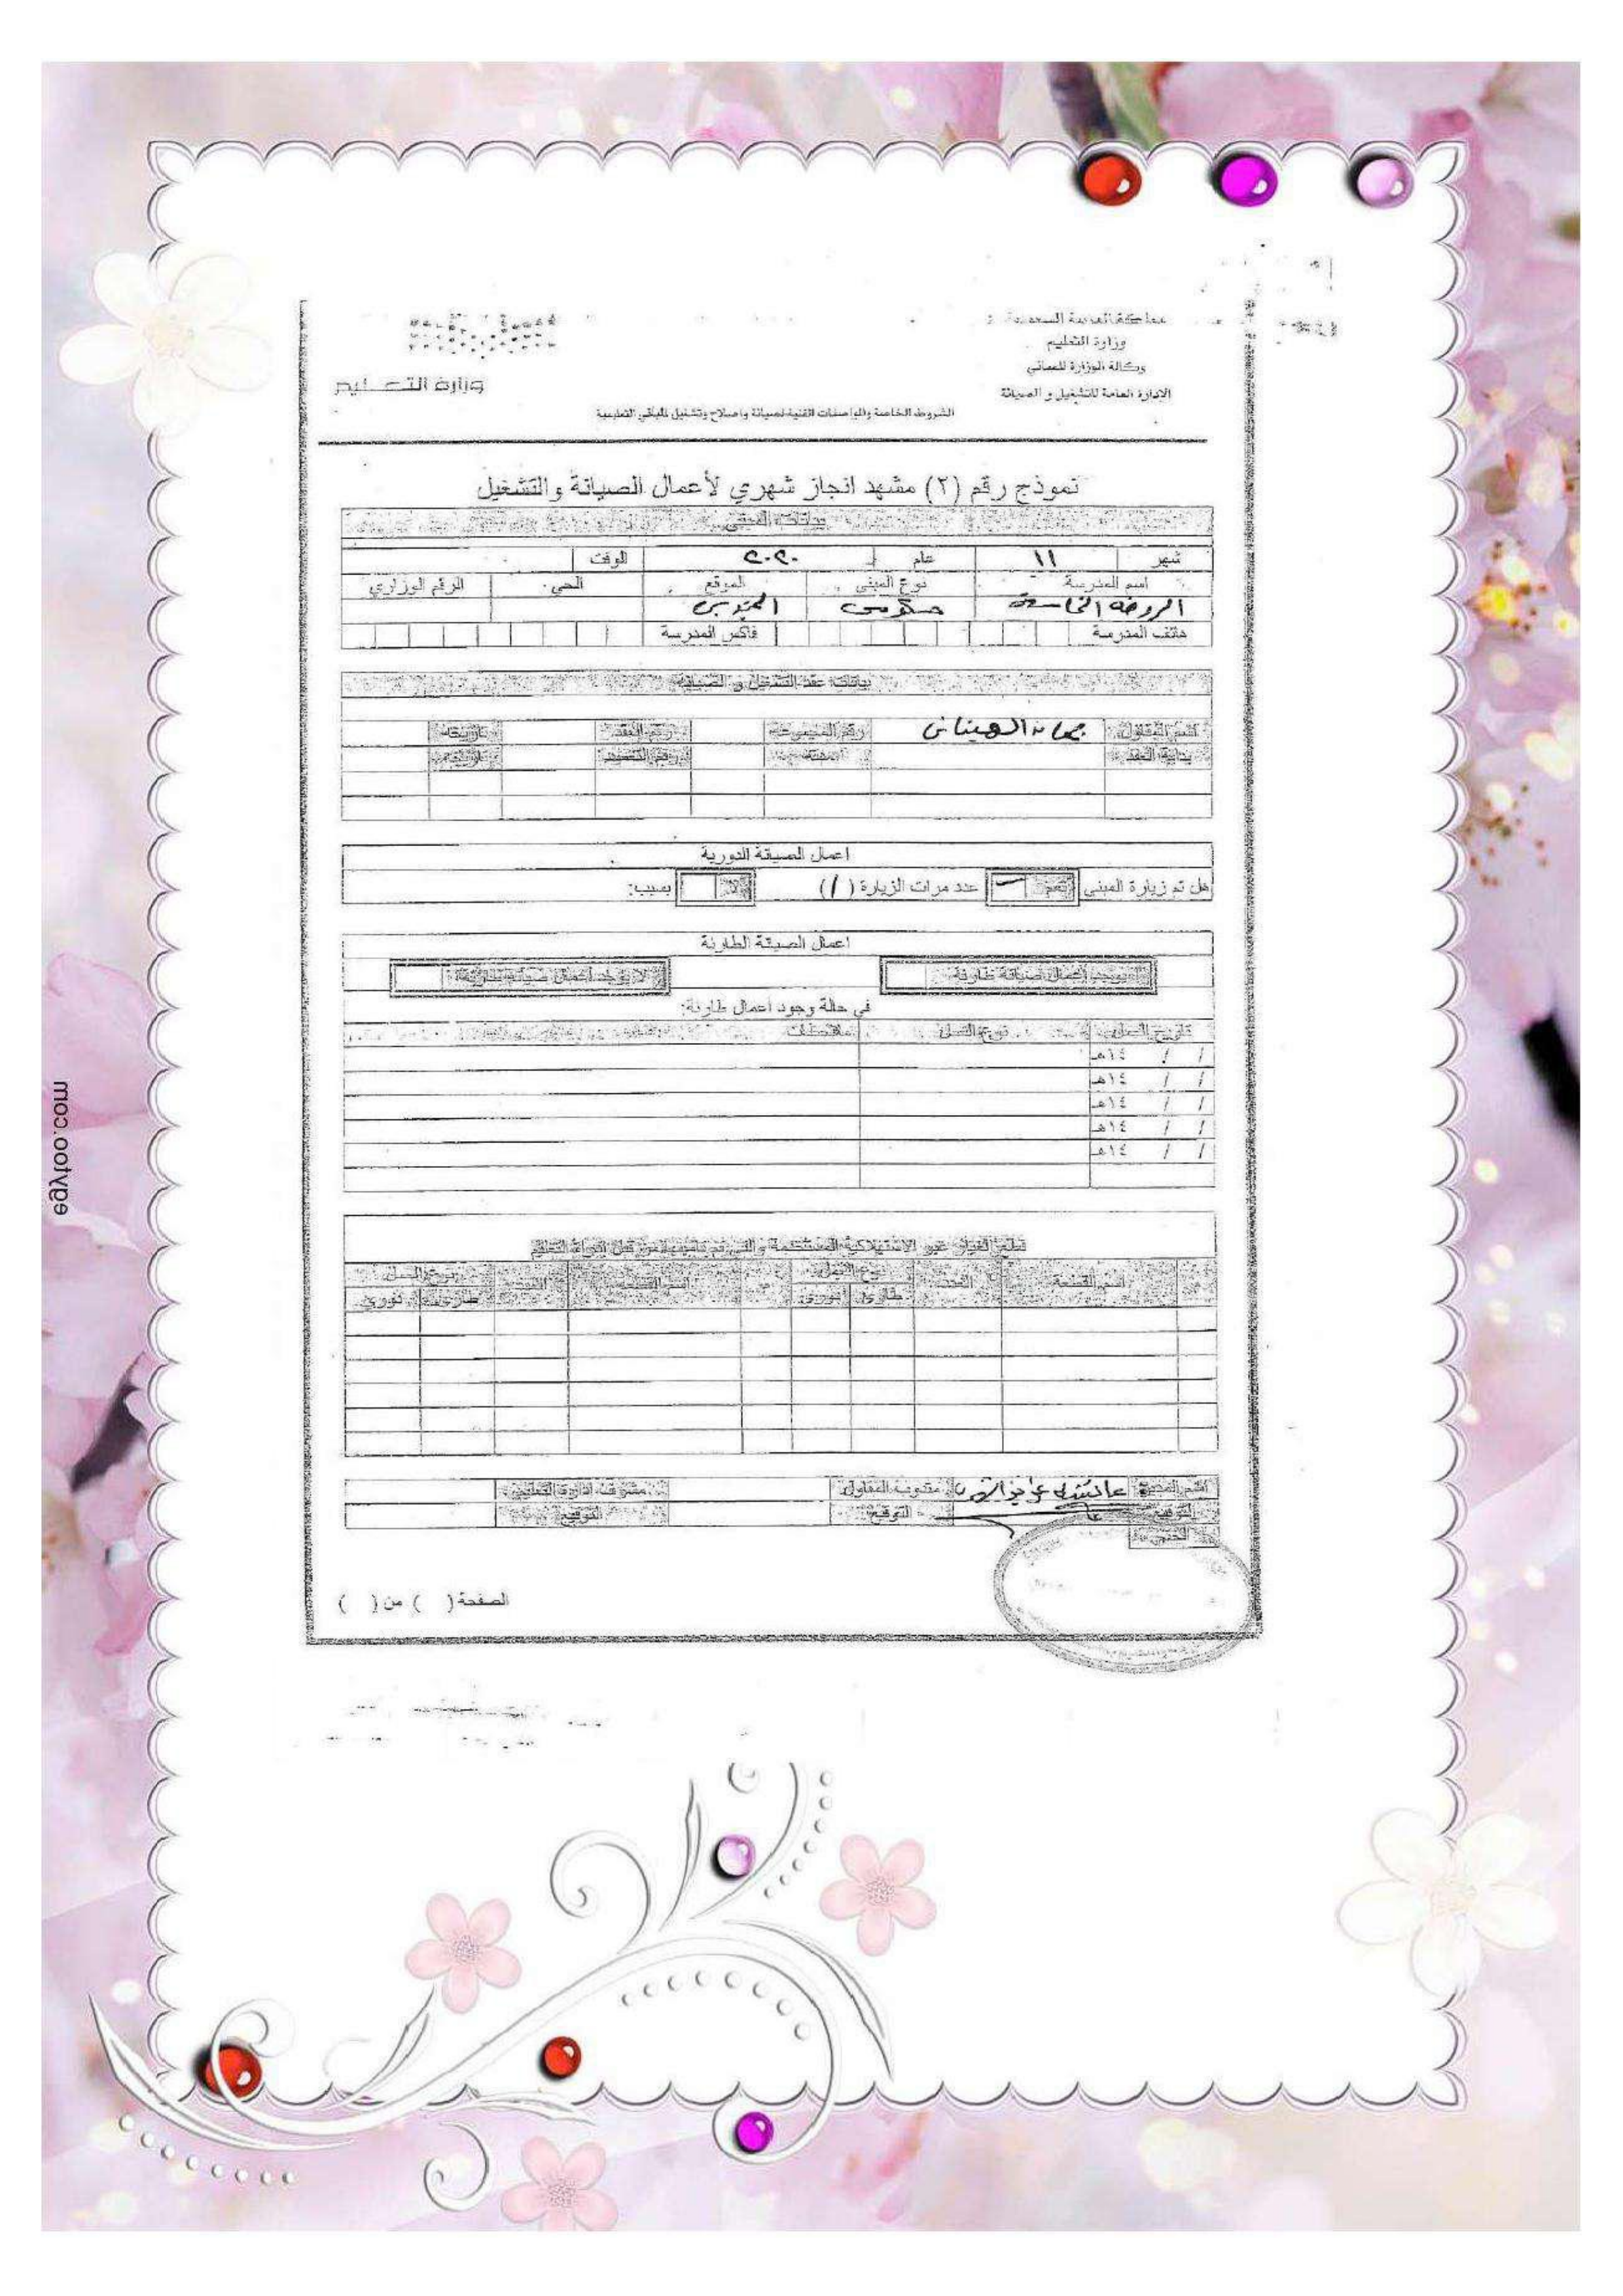 المملكة العربية السعودية
وزارة التعليم
وكالة الوزارة للمباني
الادارة العامة للتشغيل و الصيانة
وزارة التعليم
الشروط الخاصة والمواصفات الفنية لصيانة واصلاح وتشغيل المباني التعليمية
نموذج رقم (٢) مشهد انجاز شهري لأعمال الصيانة والتشغيل
بيانات المبنى
شهر ١١ عام ٢٠٢٠ الوقت
اسم المدرسة نوع المبنى الموقع الحي الرقم الوزاري
الروضة الخامسة حكومي
هاتف المدرسة فاكس المدرسة
بيانات عقد التشغيل و الصيانة
اسم المقاول رقم المجموعة رقم العقد تاريخه
بداية العقد مدته رقم التعميد تاريخه
اعمال الصيانة الدورية
هل تم زيارة المبنى نعم عدد مرات الزيارة (١) لا بسبب:
اعمال الصيانة الطارئة
يوجد أعمال صيانة طارئة لا يوجد أعمال صيانة طارئة
في حالة وجود اعمال طارئة:
تاريخ العمل نوع العمل ملاحظات
/ / ١٤هـ
/ / ١٤هـ
/ / ١٤هـ
/ / ١٤هـ
/ / ١٤هـ
قطع الغيار غير الاستهلاكية المستخدمة والتي تم تأمينها من قبل ادارة التعليم
م اسم القطعة العدد نوع العمل م اسم القطعة العدد نوع العمل
طارئ دوري طارئ دوري
اسم المديرة مندوب المقاول مشرف ادارة التعليم
التوقيع التوقيع التوقيع
الختم
الصفحة ( ) من ( )
egytoo.com